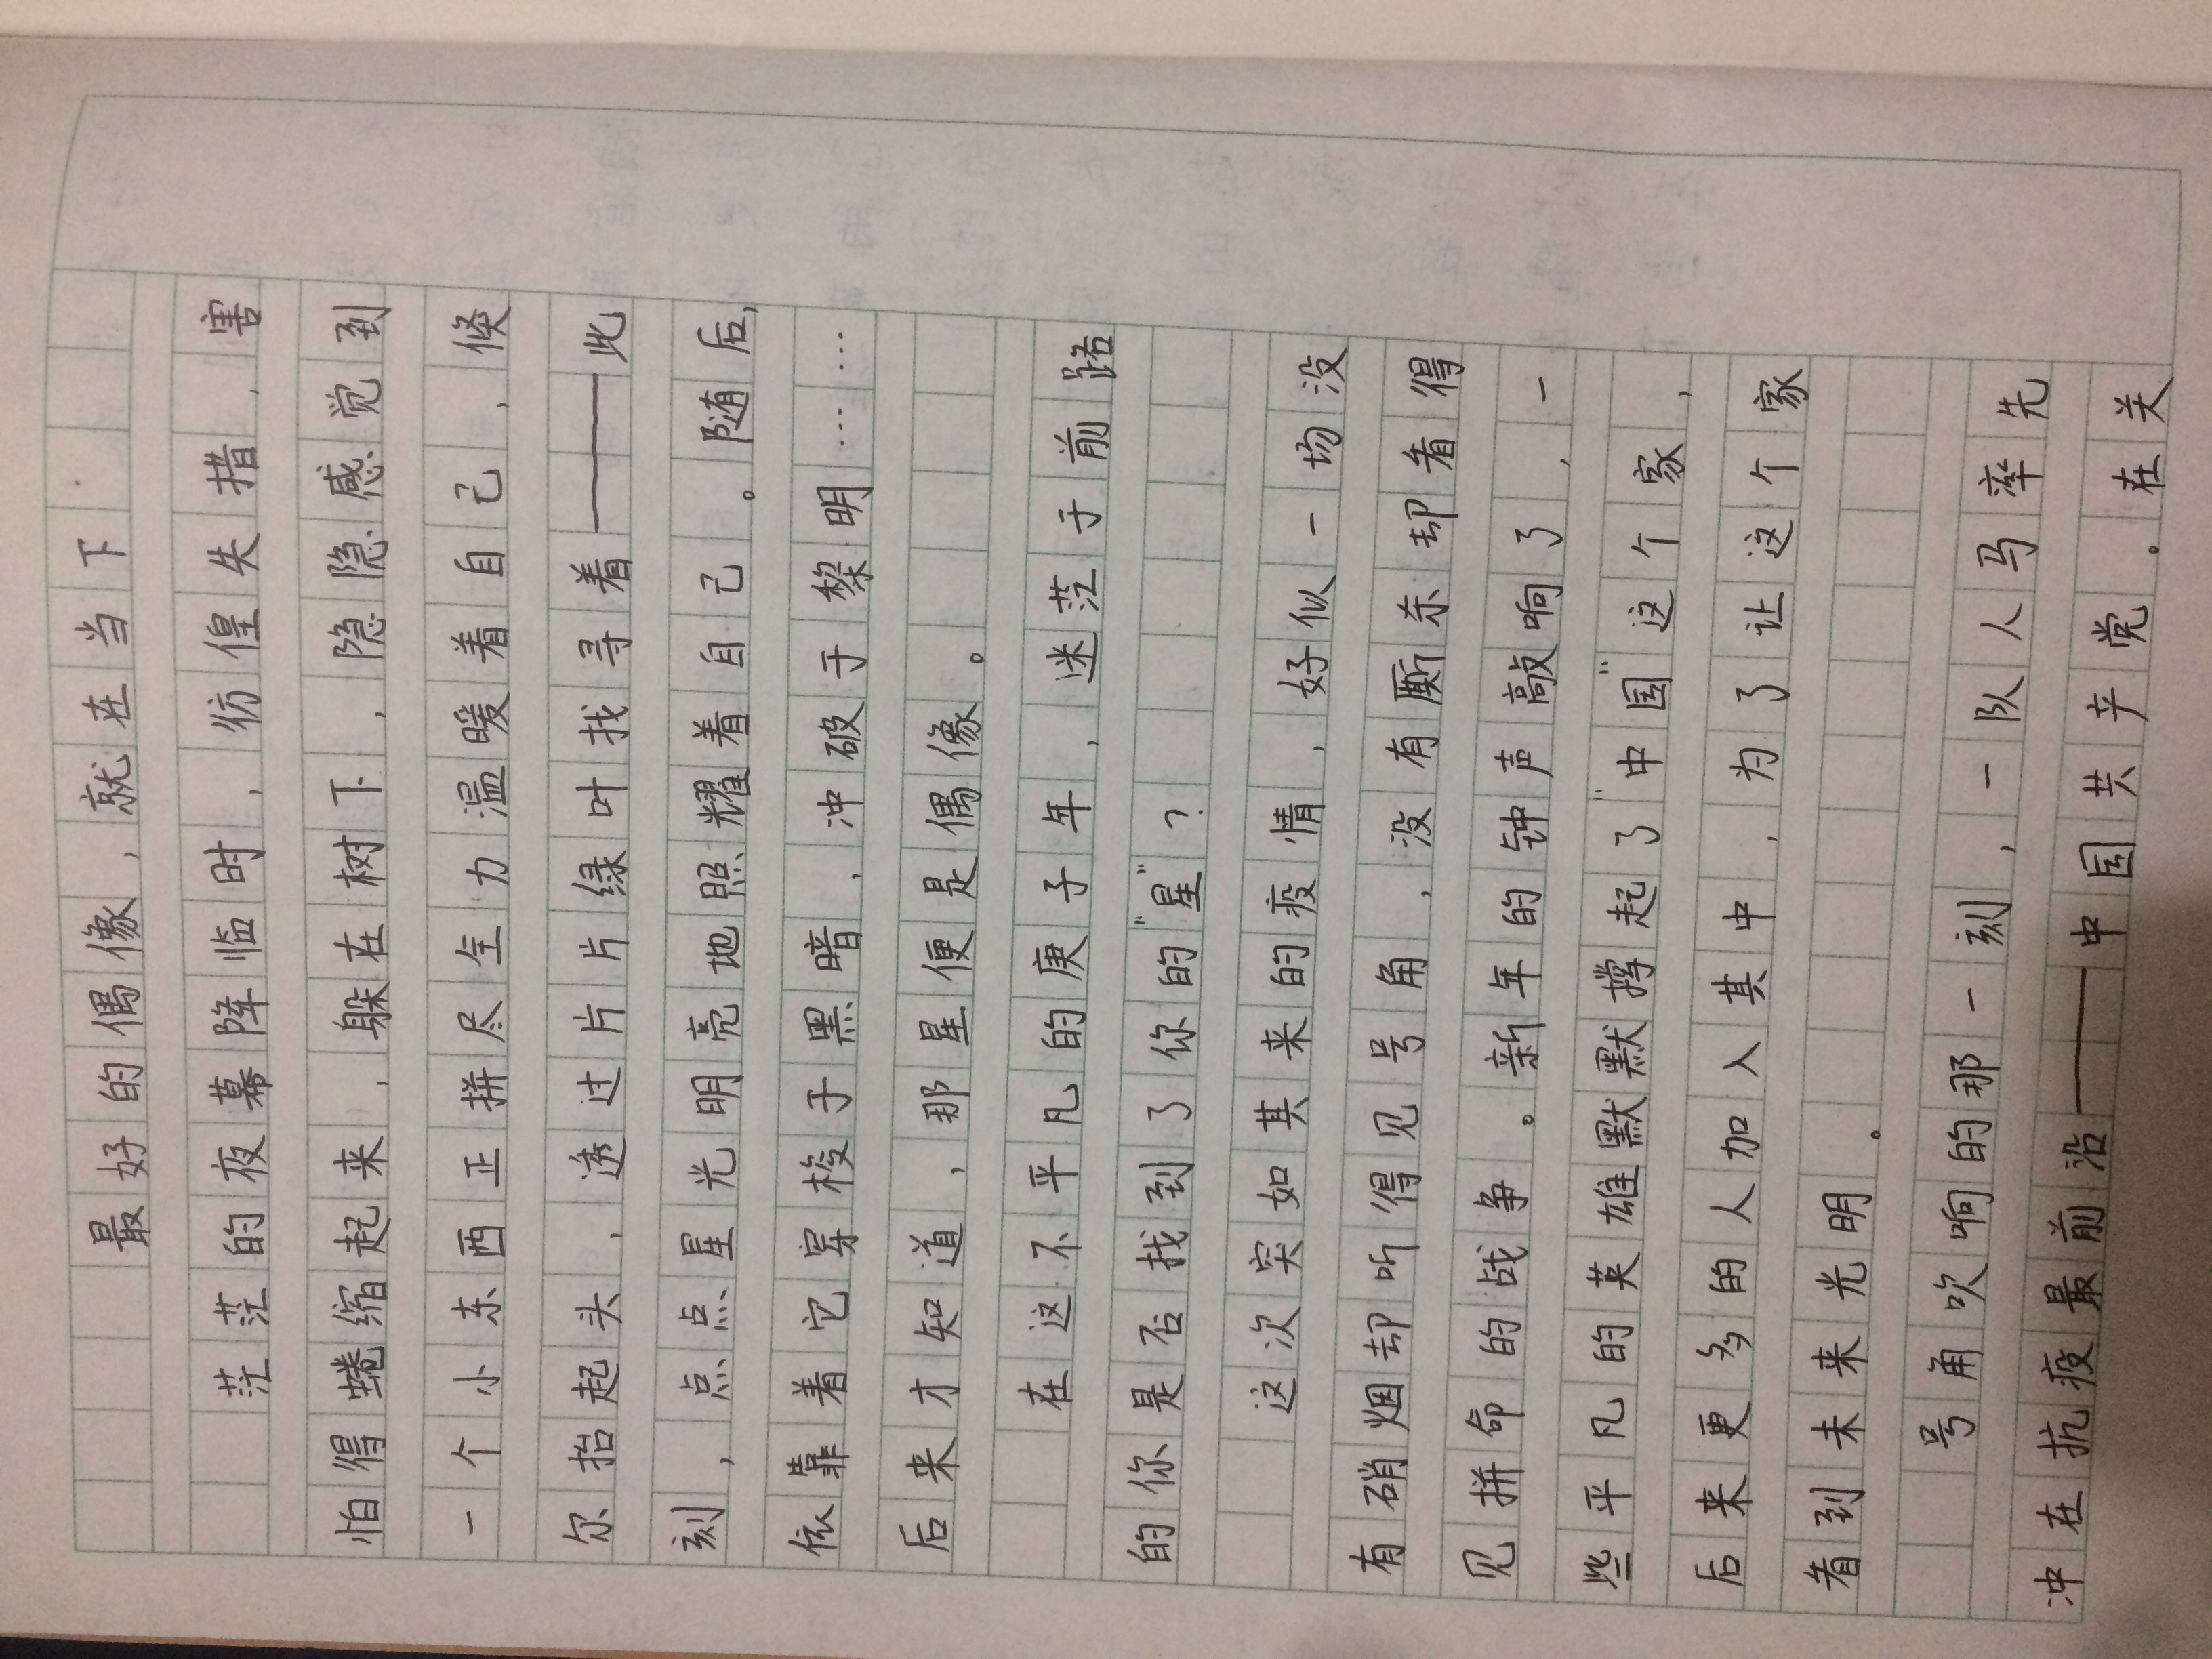 最好的偶像，就在当下
茫茫的夜幕降临时，彷徨失措，害
怕得蜷缩起来，躲在树下，隐隐感觉到
一个小东西正拼尽全力温暖着自己，倏
尔抬起头，透过片片绿叶找寻着——此
刻，点点星光明亮地照耀着自己。随后，
依靠着它穿梭于黑暗，冲破于黎明……
后来才知道，那星便是偶像。
在这不平凡的庚子年，迷茫于前路
的你是否找到了你的"星"？
这次突如其来的疫情，好似一场没
有硝烟却听得见号角，没有厮杀却看得
见拼命的战争。新年的钟声敲响了，一
些平凡的英雄默默撑起了"中国"这个家，
后来更多的人加入其中，为了让这个家
看到未来光明。
号角吹响的那一刻，一队人马率先
冲在抗疫最前沿——中国共产党。在关